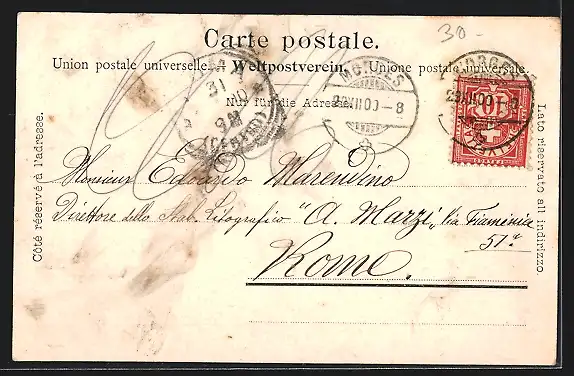 30-
Carte postale.
Union postale universelle. Weltpostverein. Unione postale universale.
Nur für die Adresse.
MORGES
29.XII.00.-8
31
9M
Côté réservé à l'adresse.
Lato riservato all'indirizzo.
Monsieur Edoardo Marendino
Direttore dello Stab. Litografico "A. Marzi" Via Flaminia
51ª
Rome.